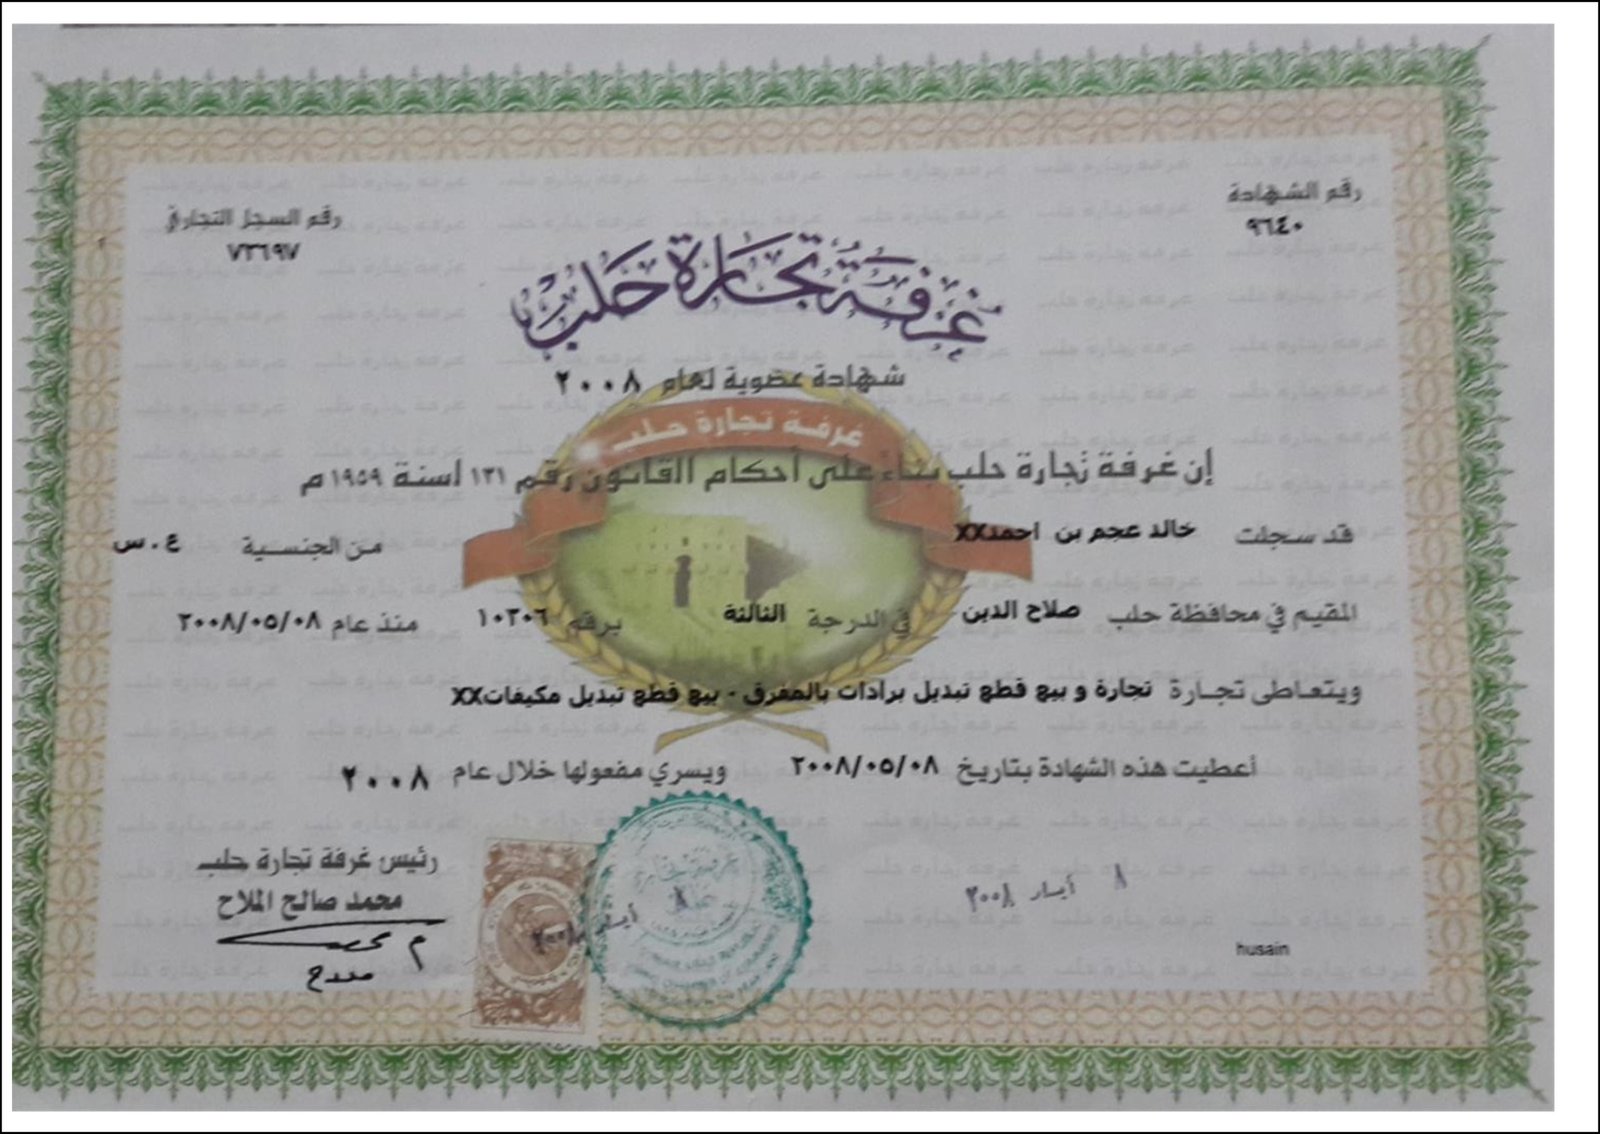 رقم الشهادة
٩٦٤٠
رقم السجل التجاري
٧٣٦٩٧
غرفة تجارة حلب
شهادة عضوية لعام ٢٠٠٨
غرفة تجارة حلب
إن غرفة تجارة حلب بناءً على أحكام القانون رقم ١٣١ لسنة ١٩٥٩ م
قد سجلت خالد عجم بن احمدXX من الجنسية ع.س
المقيم في محافظة حلب صلاح الدين في الدرجة الثالثة برقم ١٠٢٠٦ منذ عام ٢٠٠٨/٠٥/٠٨
ويتعاطى تجارة تجارة و بيع قطع تبديل برادات بالمفرق - بيع قطع تبديل مكيفاتXX
أعطيت هذه الشهادة بتاريخ ٢٠٠٨/٠٥/٠٨ ويسري مفعولها خلال عام ٢٠٠٨
رئيس غرفة تجارة حلب
محمد صالح الملاح
٨ أيار ٢٠٠٨
٨ أيار ٢٠٠٨
husain